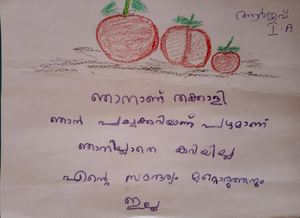 അർജുവ്
I-A
ഞാനാണ് തക്കാളി
ഞാൻ പച്ചക്കറിയാണ് പഴമാണ്
ഞാനില്ലാതെ കറിയില്ല
എന്റെ സൗന്ദര്യം മറ്റൊരുത്തനും
ഇല്ല